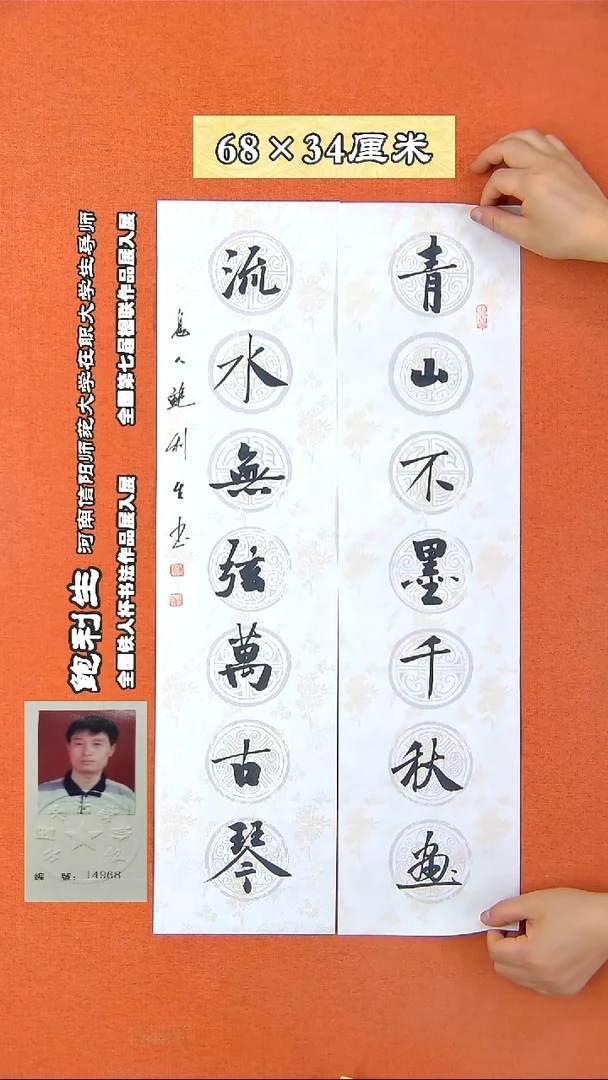 68×34厘米
青山不墨千秋画
流水無弦萬古琴
息人鲍利生书
鲍利生 河南信阳师范大学在职大学生导师
全国铁人杯书法作品展入展 全国第七届楹联作品展入展
编 號：14968